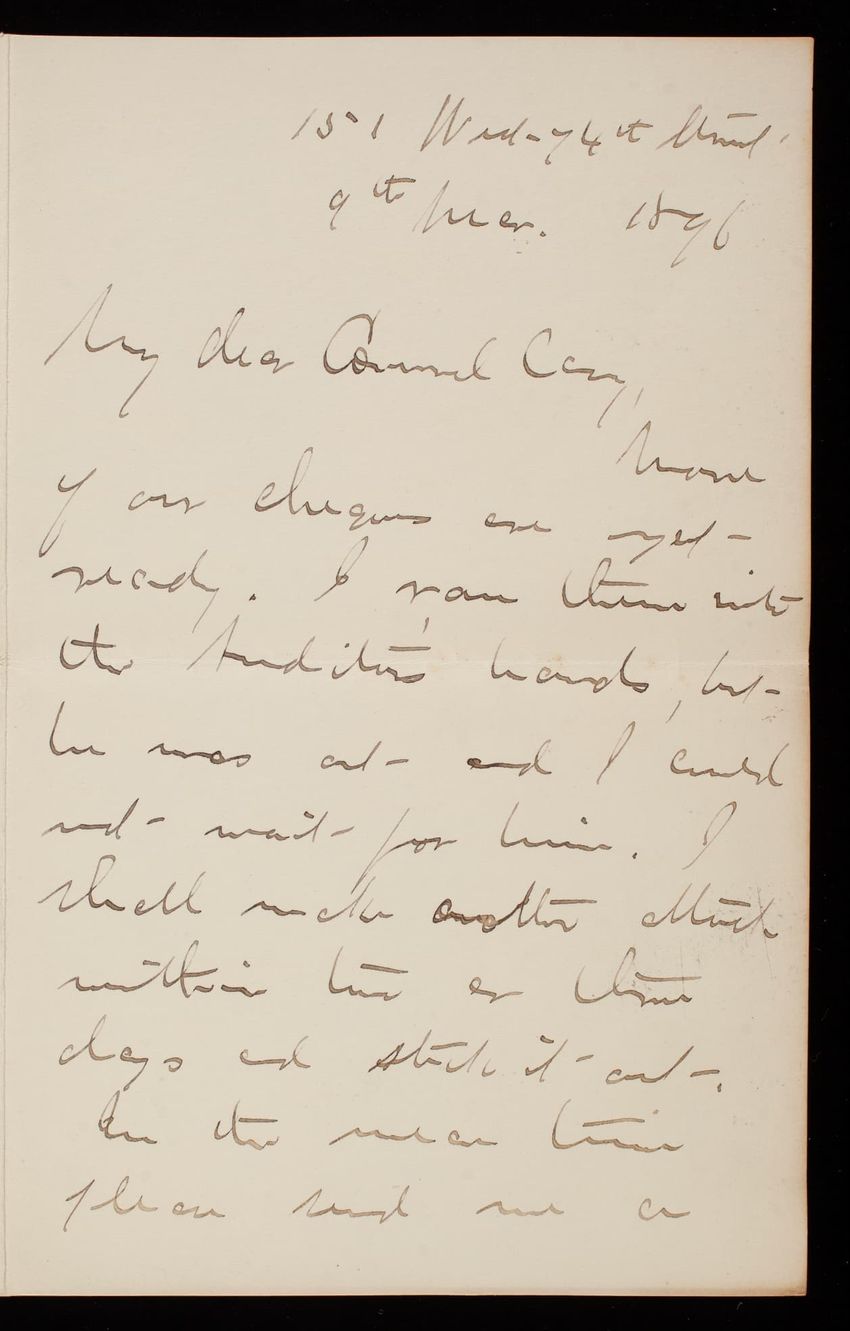 151 West-74th Street
9th Mar. 1896
My dear General Casey,
None
of our cheques are yet-
ready. I ran them into
the Auditor's hands, but-
he was out- and I could
not- wait- for him. I
shall make another attack
within two or three
days and stick it- out-.
In the mean time
please send me a